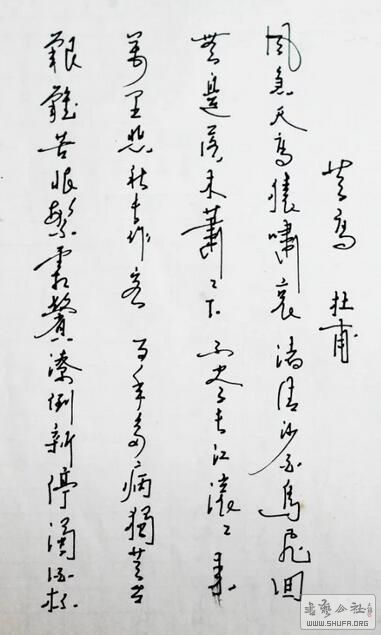 登高 杜甫
風急天高猿嘯哀渚清沙白鳥飛回
無邊落木蕭々下不盡長江滾々來
萬里悲秋常作客百年多病獨登台
艱難苦恨繁霜鬢潦倒新停濁酒杯
書藝公社
WWW.SHUFA.ORG